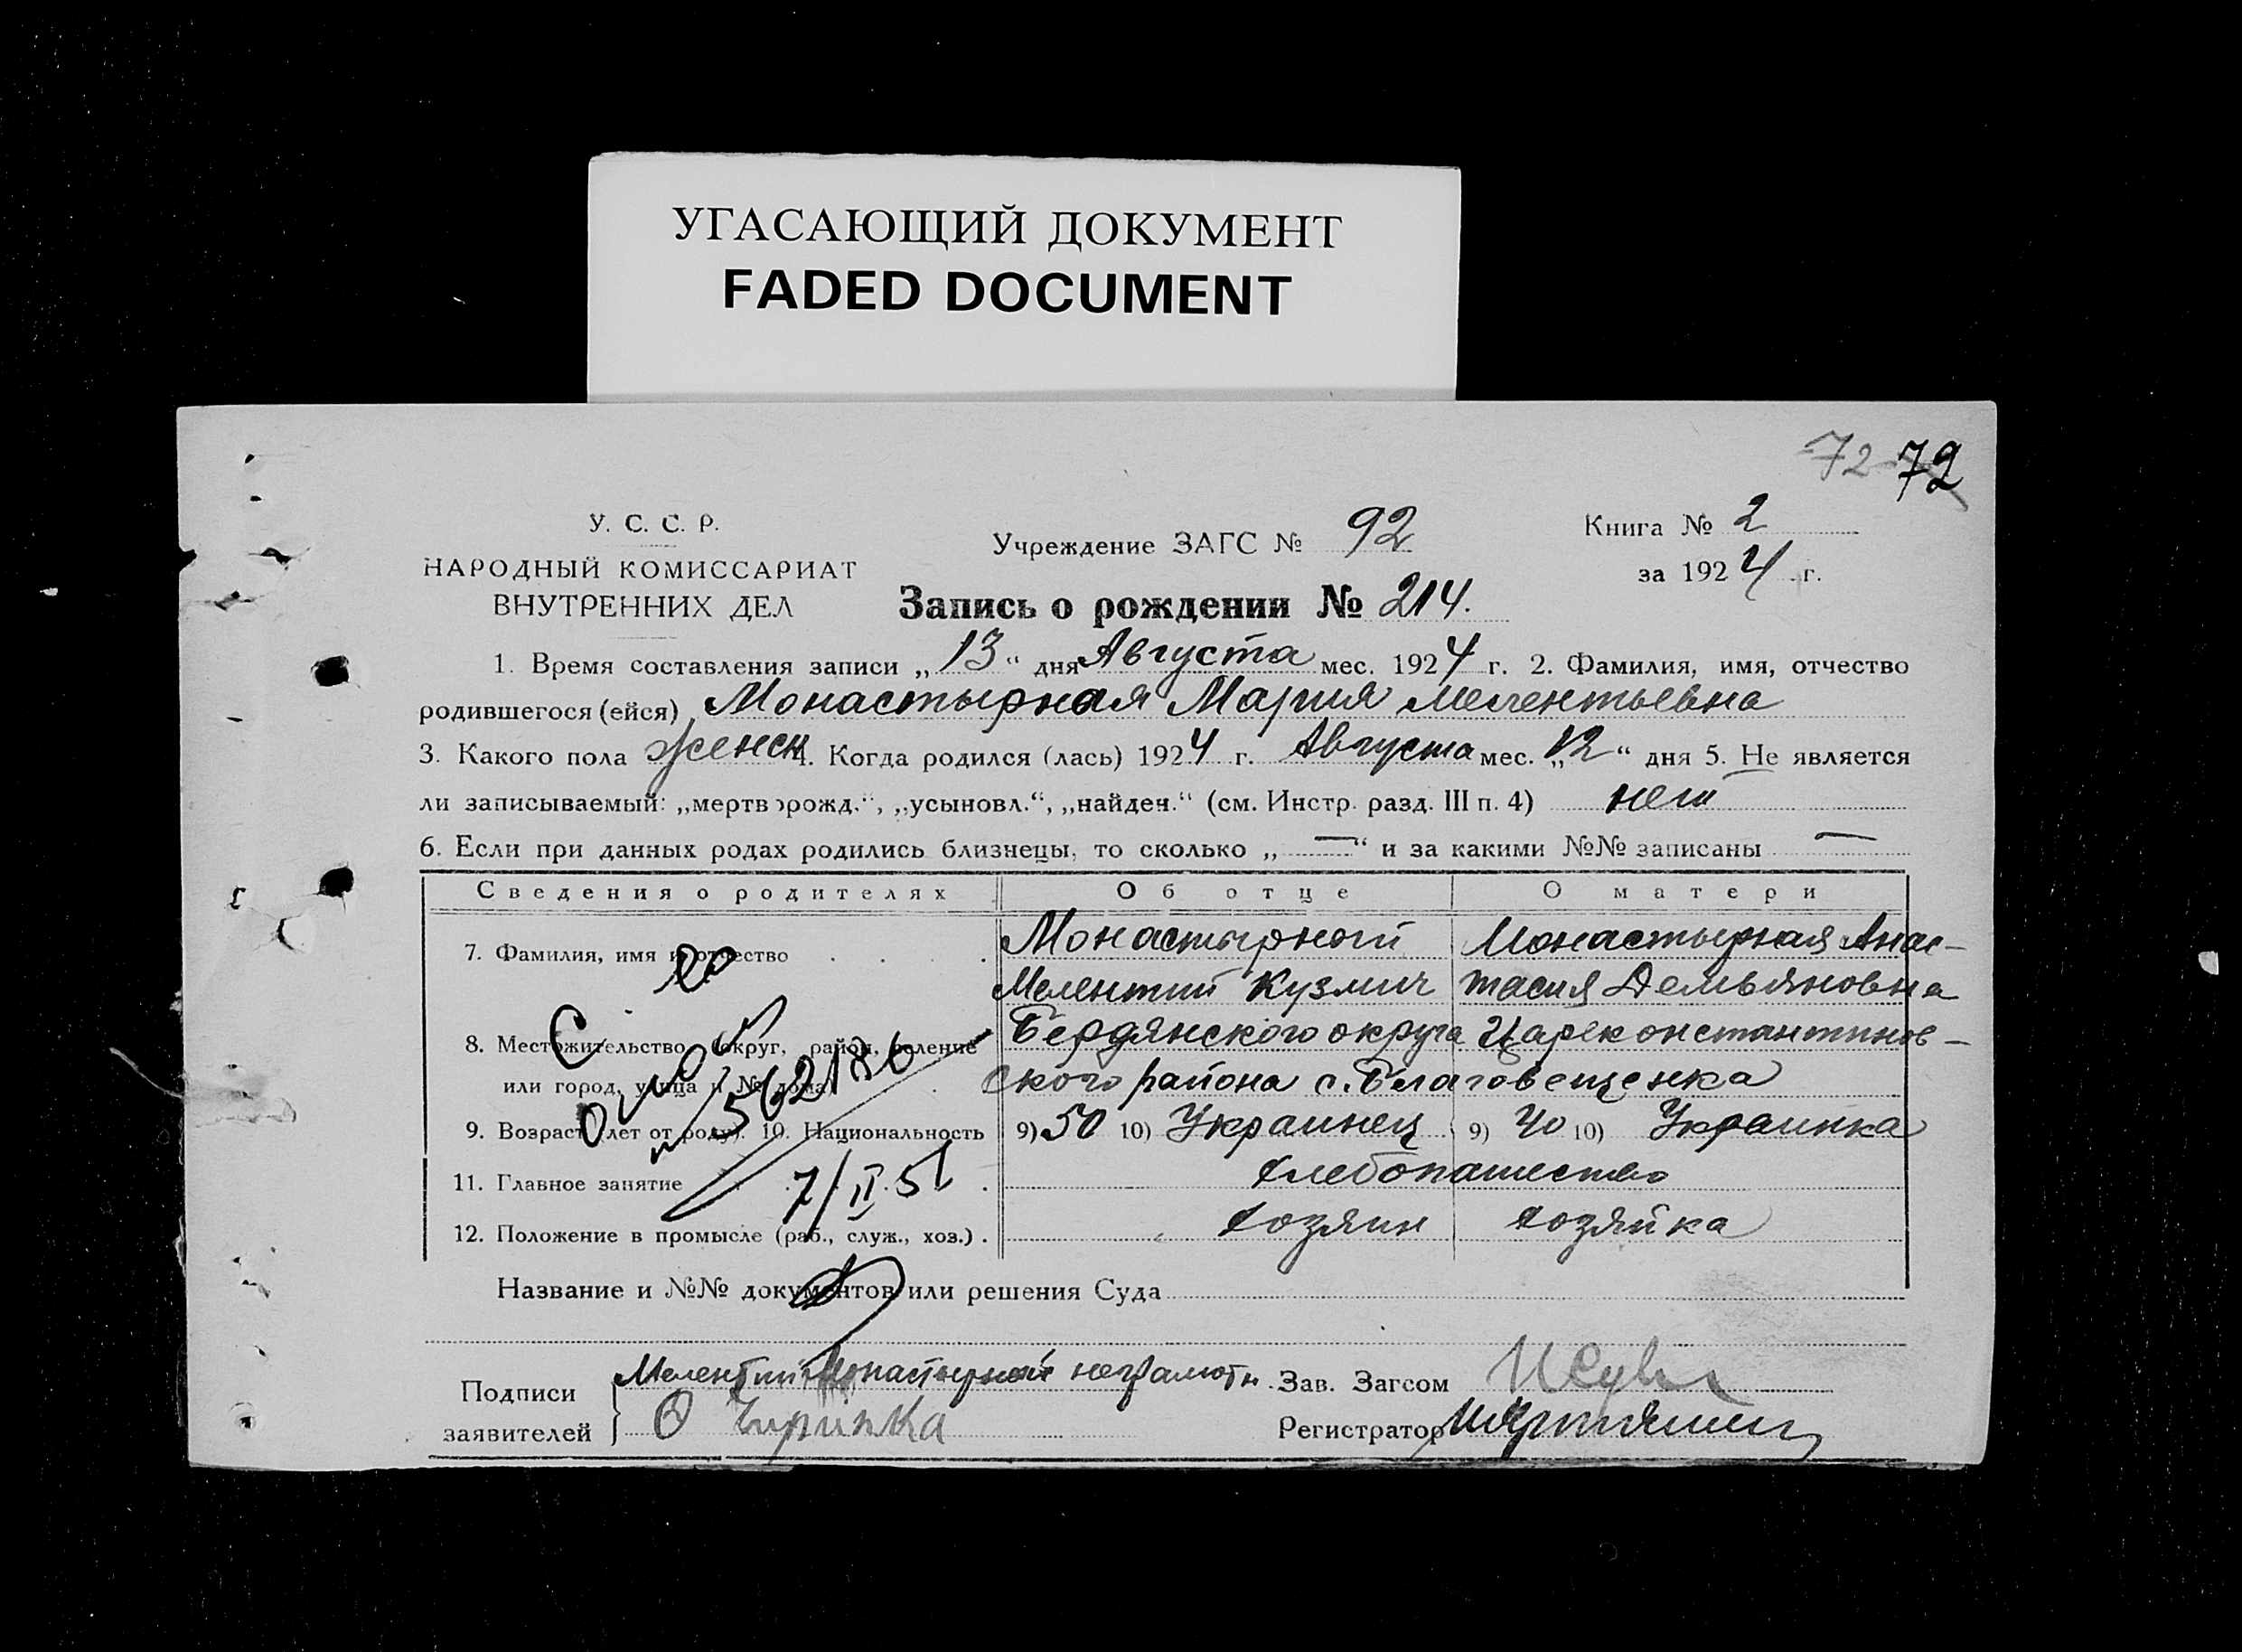 УГАСАЮЩИЙ ДОКУМЕНТ
FADED DOCUMENT
72 72
У. С. С. Р.
НАРОДНЫЙ КОМИССАРИАТ
ВНУТРЕННИХ ДЕЛ
Учреждение ЗАГС № 92
Книга № 2
за 1924 г.
Запись о рождении № 214.
1. Время составления записи „13“ дня Августа мес. 1924 г. 2. Фамилия, имя, отчество
родившегося (ейся) Монастырная Мария Мелентьевна
3. Какого пола женск 4. Когда родился (лась) 1924 г. Августа мес. „12“ дня 5. Не является
ли записываемый: „мертворожд.“, „усыновл.“, „найден.“ (см. Инстр. разд. III п. 4) нет
6. Если при данных родах родились близнецы, то сколько „—“ и за какими №№ записаны —
Сведения о родителях Об отце О матери
7. Фамилия, имя и отчество . . . . Монастырной Монастырная Анас-
Мелентий Кузмич тасия Демьяновна
8. Местожительство, округ, район, селение Бердянского округа Цареконстантинов-
или город, улица и № дома . ского района с. Благовещенка
9. Возраст (лет от роду). 10. Национальность 9) 50 10) Украинец 9) 40 10) Украинка
11. Главное занятие . . . . хлебопашество
7/II 51
12. Положение в промысле (раб., служ., хоз.) . хозяин хозяйка
Название и №№ документов или решения Суда
Подписи заявителей Мелентий Монастырной неграмотн.
Зав. Загсом
Регистратор